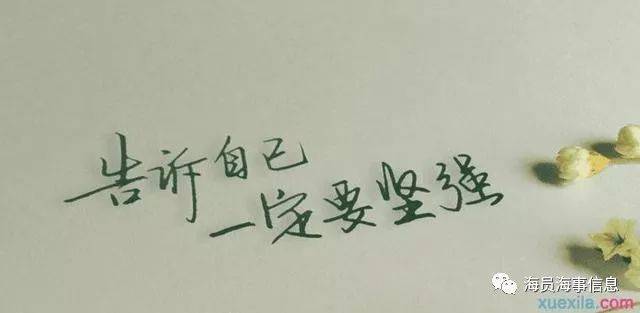 告诉自己
一定要坚强
海员海事信息
xuexila.com